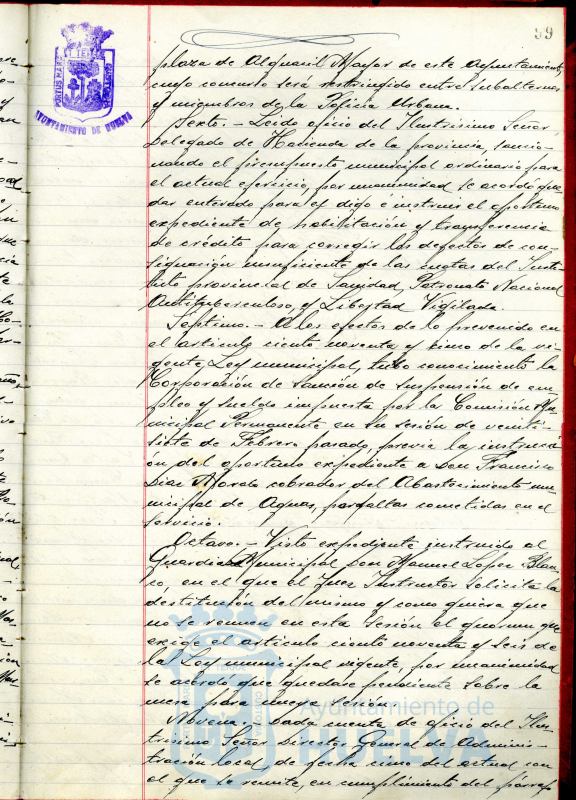 59
PORTUS MARIS
AYUNTAMIENTO DE HUELVA
plaza de Alguacil Mayor de este Ayuntamiento,
cuyo concurso será restringido entre subalternos
y miembros de la Policía Urbana.
Sexto.- Leido oficio del Ilustrísimo Señor
Delegado de Hacienda de la provincia, sancio-
nando el presupuesto municipal ordinario para
el actual ejercicio, por unanimidad se acordó que-
dar enterado para ej digo é instruir el oportuno
expediente de habilitación y transferencia
de crédito para corregir los defectos de con-
signación insuficiente de las cuotas del Insti-
tuto provincial de Sanidad, Patronato Nacional
Antituberculoso, y Libertad Vigilada.
Séptimo.- A los efectos de lo prevenido en
el artículo ciento noventa y cinco de la vi-
gente Ley municipal, tubo conocimiento la
Corporación de sanción de suspensión de em-
pleo y sueldo impuesta por la Comisión Mu-
nicipal Permanente en su sesión de veinti-
siete de Febrero pasado, previa la instrucci-
ón del oportuno expediente a Don Francisco
Diaz Morales cobrador del Abastecimiento mu-
nicipal de Aguas, por faltas cometidas en el
servicio.
Octavo.- Visto expediente instruido al
Guardia Municipal Don Manuel Lopez Blan-
co, en el que el Juez Instructor solicita la
destitución del mismo y como quiera que
no se reunen en esta sesión el quorum que
exige el artículo ciento noventa y seis de
la Ley municipal vigente, por unanimidad
se acordó que quedase pendiente sobre la
mesa para nueva sesión.
Novena.- Dada cuenta de oficio del Ilus-
trisimo Señor Director General de Adminis-
tración local de fecha cinco del actual con
el que se remite, en cumplimiento del párrafo
Ayuntamiento de
HUELVA